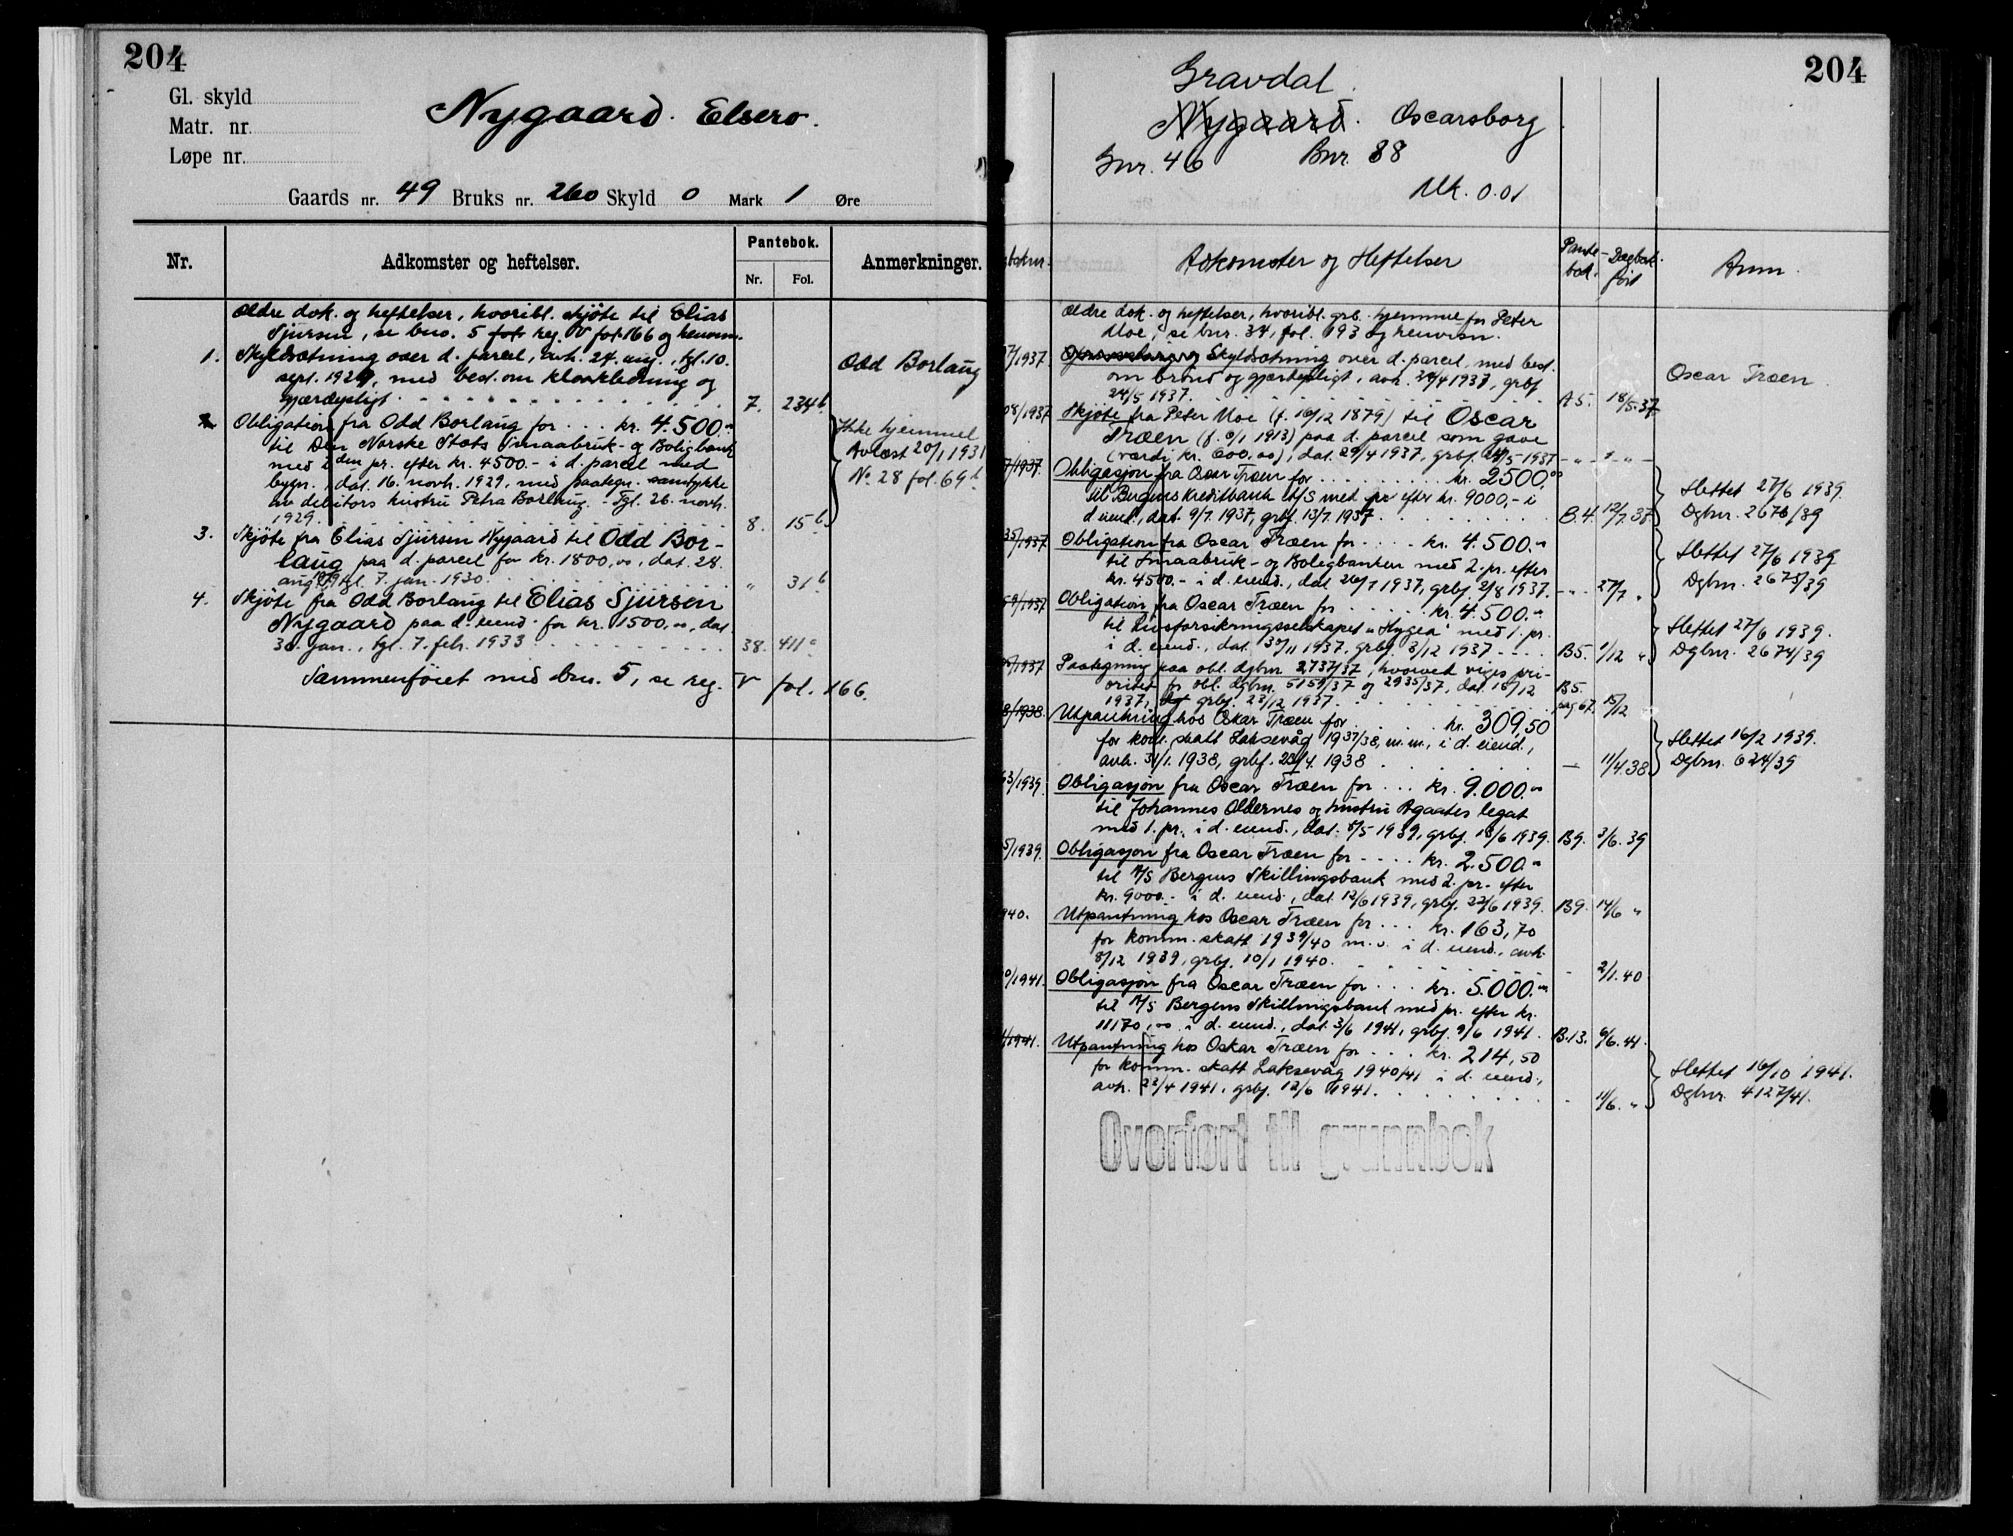 204
Gl. skyld
Matr. nr.
Løpe nr.
Nygaard. Elsero.
Gaards nr. 49 Bruks nr. 260 Skyld 0 Mark 1 Øre
Nr.
Adkomster og heftelser.
Pantebok.
Nr. Fol.
Anmerkninger.
Ældre dok. og heftelser, hvoribl. skjöte til Elias
Sjursen, se bno. 5 reg. V fol. 166 og henvisn.
1. Skyldsætning over d. parcel, avh. 24. aug., tgl. 10.
sept. 1929, med best. om kloakledning og
gjærdepligt. 7. 234b.
Odd Borlaug
2. Obligation fra Odd Borlaug for . . . kr. 4.500.-
til Den Norske Stats Smaabruk- og Boligbank
med 1den pr. efter kr. 4500.- i d. parcel med
bygn., dat. 16. novb. 1929, med paategn. samtykke
av debitors hustru Petra Borlaug. - Tgl. 26. novb.
1929. 8. 15b.
Ikke hjemmel
Avlæst 20/1 1931
No 28 fol. 69b.
3. Skjöte fra Elias Sjursen Nygaard til Odd Bor-
laug paa d. parcel for kr. 1800,00, dat. 28.
aug. 1929, tgl. 7. jan. 1930. " 31b.
4. Skjöte fra Odd Borlaug til Elias Sjursen
Nygaard paa d. eiend. for kr. 1500,00, dat.
30. jan., tgl. 7. feb. 1933 38. 411a.
Sammenföiet med bno. 5, se reg. V fol. 166.
204
Gravdal.
Nygaard. Oscarsborg
Gnr. 46 Bnr. 88
Mk. 0.01
Adkomster og Heftelser
Pante-bok.
Dagbok-ført
Anm.
Ældre dok. og heftelser, hvoribl. grb. hjemmel for Peter
Moe, se bnr. 34, fol. 193 og henvisn.
/1937 Skyldsætning over d. parcel, med best.
om brönd og gjærdepligt, avh. 24/4 1937, grbf.
24/5 1937. A 5. 18/5.37
Oscar Træen
08/1937 Skjöte fra Peter Moe (f. 16/12 1879) til Oscar
Træen (f. 8/1 1913) paa d. parcel som gave
(værdi kr. 600,00), dat. 29/4 1937, grbf. 24/5 1937 - " - " -
7/1937. Obligasjon fra Oscar Træen for . . . kr. 2500,00
til Bergens Kreditbank A/S med pr efter kr. 9000,- i
d. eiend., dat. 9/7. 1937, grbf. 13/7. 1937. B. 4. 12/7.37
Slettet 27/6 1939.
Dgbnr. 2676/39
35/1937. Obligation fra Oscar Træen for . . . kr. 4.500.-
til Smaabruk- og Boligbanken med 2. pr. efter
kr. 4500.- i d. eiend., dat. 26/7 1937, grbf. 2/8 1937. - " - 27/7 "
Slettet 27/6 1939
Dgbnr. 2675/39
59/1937 Obligation fra Oscar Træen for . . . kr. 4.500.-
til Livsforsikringsselskapet "Hygea" med 1. pr.
i d. eiend., dat. 30/11 1937, grbf. 3/12 1937 B5. 1/12 "
Slettet 27/6 1939.
Dgbnr. 2674/39
/1937 Paategning paa obl. dgbnr. 2737/37, hvorved viges pri-
oritet for obl. dgbnr. 5159/37 og 2935/37, dat. 15/12
1937, grbf. 23/12 1937. B5. pag 67. 15/12
8/1938 Utpantning hos Oskar Træen for . . . kr. 309,50
for kom. skatt Laksevåg 1937/38, m. m., i d. eiend.,
avh. 31/1. 1938, grbf. 23/4. 1938 - 11/4.38
Slettet 16/2 1939.
Dgbnr. 624/39
63/1939. Obligasjon fra Oscar Træen for . . . kr. 9.000.00
til Johannes Oldernes og hustru Agaates legat
med 1. pr. i d. eiend., dat. 8/5 1939, grbf. 13/6 1939. B9. 3/6.39
5/1939. Obligasjon fra Oscar Træen for . . . kr. 2.500.-
til A/S Bergens Skillingsbank med 2. pr. efter
kr. 9000.- i d. eiend., dat. 12/6 1939, grbf. 22/6 1939. B9. 14/6 "
940. Utpantning hos Oscar Træen for . . . kr. 163,70
for komm. skatt 1939/40 m. v. i d. eiend., avh.
8/12 1939, grbf. 10/1 1940. - 2/1.40
0/1941. Obligasjon fra Oscar Træen for . . . kr. 5.000.00
til A/S Bergens Skillingsbank med pr. efter kr.
11170,00 i d. eiend., dat. 3/6 1941, grbf. 9/6 1941. B.13. 6/6.41.
/1941. Utpantning hos Oskar Træen for . . . kr. 214,50
for komm. skatt Laksevåg 1940/41 i d. eiend.,
avh. 22/4 1941, grbf. 12/6 1941. - 11/6. "
Slettet 16/10 1941.
Dgbnr. 4127/41.
Overført til grunnbok